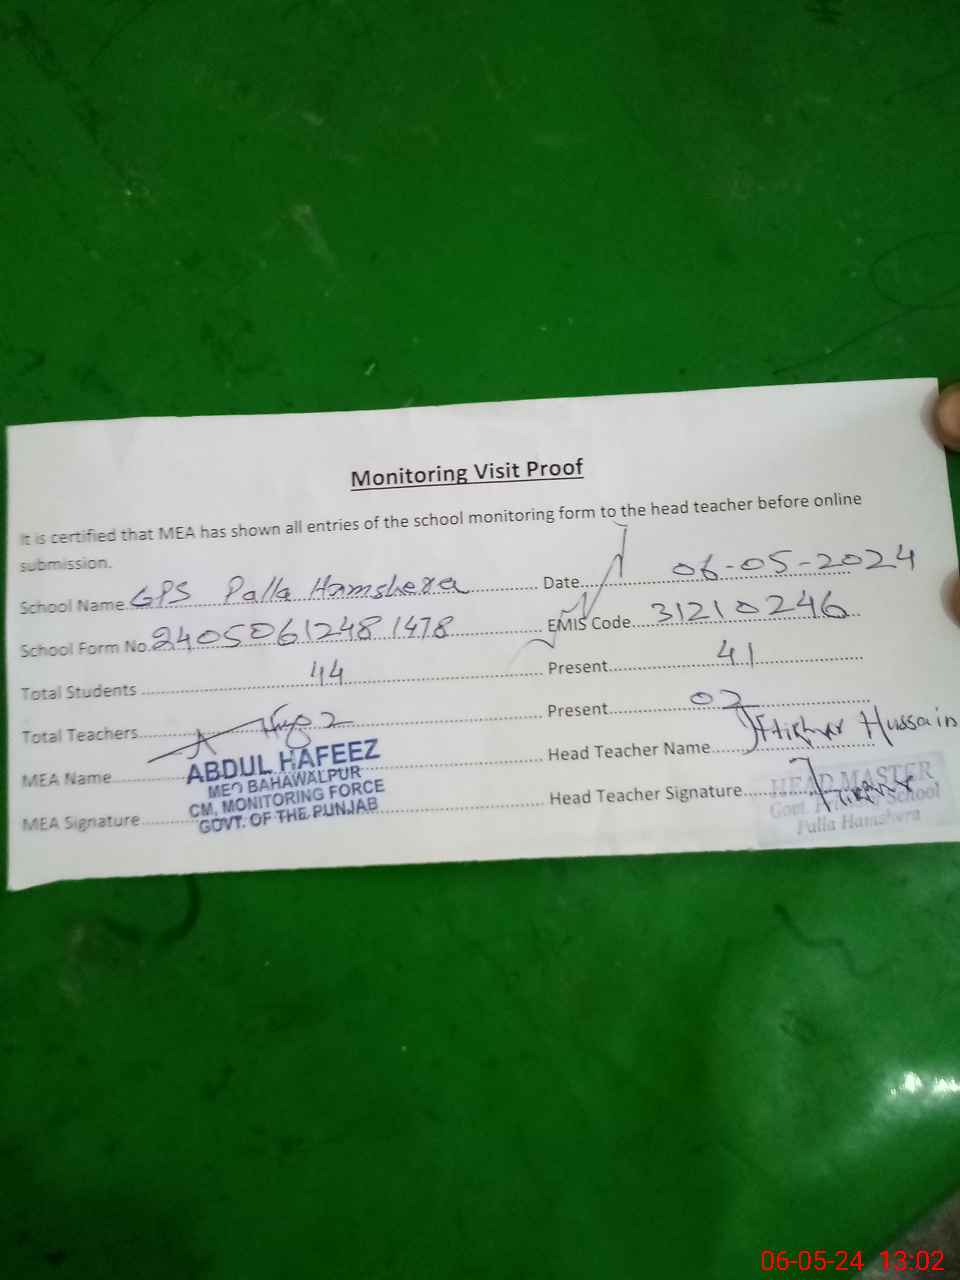 Monitoring Visit Proof
It is certified that MEA has shown all entries of the school monitoring form to the head teacher before online
submission.
School Name GPS Palla Hamshera Date 06-05-2024
School Form No. 24050612481478 EMIS Code 31210246
Total Students 44 Present 41
Total Teachers 2 Present 02
MEA Name ABDUL HAFEEZ Head Teacher Name Hussain
MEO BAHAWALPUR
CM, MONITORING FORCE
GOVT. OF THE PUNJAB
MEA Signature Head Teacher Signature
HEAD MASTER
Govt. School
Palla Hamshera
06-05-24 13:02